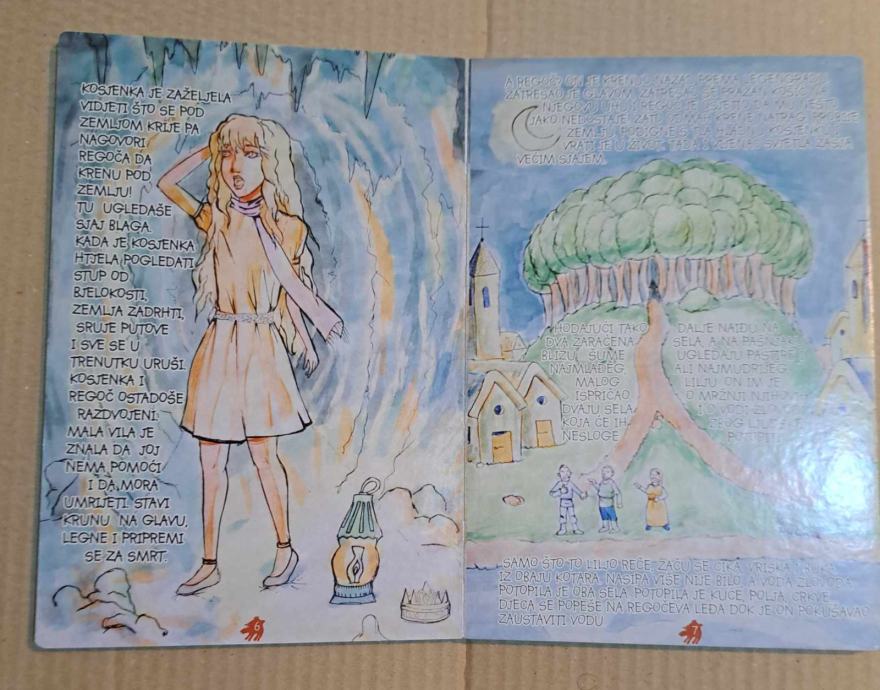 KOSJENKA JE ZAŽELJELA
VIDJETI ŠTO SE POD
ZEMLJOM KRIJE PA
NAGOVORI
REGOČA DA
KRENU POD
ZEMLJU!
TU UGLEDAŠE
SJAJ BLAGA.
KADA JE KOSJENKA
HTJELA POGLEDATI
STUP OD
BJELOKOSTI,
ZEMLJA ZADRHTI,
SRUJE PUTOVE
I SVE SE U
TRENUTKU URUŠI.
KOSJENKA I
REGOČ OSTADOŠE
RAZDVOJENI.
MALA VILA JE
ZNALA DA JOJ
NEMA POMOĆI
I DA MORA
UMRIJETI. STAVI
KRUNU NA GLAVU,
LEGNE I PRIPREMI
SE ZA SMRT.
6
A REGOČ? ON JE KRENUO NAZAD PREMA LEGENGRADU.
ZATRESAO JE GLAVOM, ZATRESAO SE PRAZAN KOSJENKIN
JAKO NEDOSTAJE ZATO ODMAH KRENE NATRAG
ZEMLJU, PODIGNE S TLA HLADNU KOSJENKU I
VRATI JE U ŽIVOT. TADA I MJESEC SVIJETLI ZASJA
VEĆIM SJAJEM.
HODAJUĆI TAKO DALJE NAIĐU NA
DVA ZARAĆENA SELA, A NA PAŠNJAKU
BLIZU ŠUME UGLEDAJU PASTIRE
NAJMLAĐEG ALI NAJMUDRIJEG
MALOG LILJU. ON IM JE
ISPRIČAO O MRŽNJI NJIHOVIH
DVAJU SELA I O VODI
KOJA ĆE IH ZBOG
NESLOGE
SAMO ŠTO TO LILJO REČE, ZAČU SE CIKA, VRISKA I BUKA
IZ OBAJU KOTARA. NASIPA VIŠE NIJE BILO, A VODA
POTOPILA JE OBA SELA. POTOPILA JE KUĆE, POLJA, CRKVE.
DJECA SE POPEŠE NA REGOČEVA LEĐA DOK JE ON POKUŠAVAO
ZAUSTAVITI VODU.
7